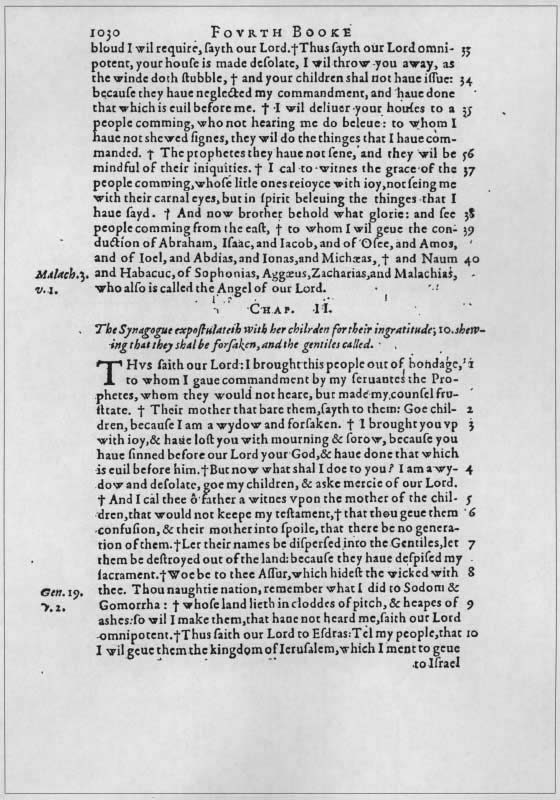 1030 FOVRTH BOOKE
bloud I wil require, ſayth our Lord.†Thus ſayth our Lord omni- 33
potent, your houſe is made deſolate, I wil throw you away, as
the winde doth ſtubble, † and your children shal not haue iſſue: 34
becauſe they haue neglected my commandment, and haue done
that which is euil before me. † I wil deliuer your houſes to a 35
people comming, who not hearing me do beleue: to whom I
haue not shewed ſignes, they wil do the thinges that I haue com-
manded. † The prophetes they haue not ſene, and they wil be 56
mindful of their iniquities. † I cal to witnes the grace of the 37
people comming, whoſe litle ones reioyce with ioy, not ſeing me
with their carnal eyes, but in ſpirit beleuing the thinges that I
haue ſayd. † And now brother behold what glorie: and ſee 38
people comming from the eaſt, † to whom I wil geue the con- 39
duction of Abraham, Iſaac, and Iacob, and of Oſee, and Amos,
and of Ioel, and Abdias, and Ionas, and Michæas, † and Naum 40
Malach.3. and Habacuc, of Sophonias, Aggæus, Zacharias, and Malachias,
v.1. who alſo is called the Angel of our Lord.
CHAP. II.
The Synagogue expoſtulateth with her chilrden for their ingratitude; 10. shew-
ing that they shal be forſaken, and the gentiles called.
THVS ſaith our Lord: I brought this people out of bondage, 1
to whom I gaue commandment by my ſeruantes the Pro-
phetes, whom they would not heare, but made my counſel fru-
ſtrate. † Their mother that bare them, ſayth to them: Goe chil- 2
dren, becauſe I am a wydow and forſaken. † I brought you vp 3
with ioy, & haue loſt you with mourning & ſorow, becauſe you
haue ſinned before our Lord your God, & haue done that which
is euil before him.†But now what shal I doe to you? I am a wy- 4
dow and deſolate, goe my children, & aske mercie of our Lord.
† And I cal thee ô father a witnes vpon the mother of the chil- 5
dren, that would not keepe my teſtament, † that thou geue them 6
confuſion, & their mother into ſpoile, that there be no genera-
tion of them.†Let their names be diſperſed into the Gentiles, let 7
them be deſtroyed out of the land: becauſe they haue deſpiſed my
ſacrament.†Woe be to thee Aſſur, which hideſt the wicked with 8
Gen. 19. thee. Thou naughtie nation, remember what I did to Sodom &
v.2. Gomorrha: † whoſe land lieth in cloddes of pitch, & heapes of 9
ashes: ſo wil I make them, that haue not heard me, ſaith our Lord
omnipotent.†Thus ſaith our Lord to Eſdras: Tel my people, that 10
I wil geue them the kingdom of Ieruſalem, which I ment to geue
to Iſrael